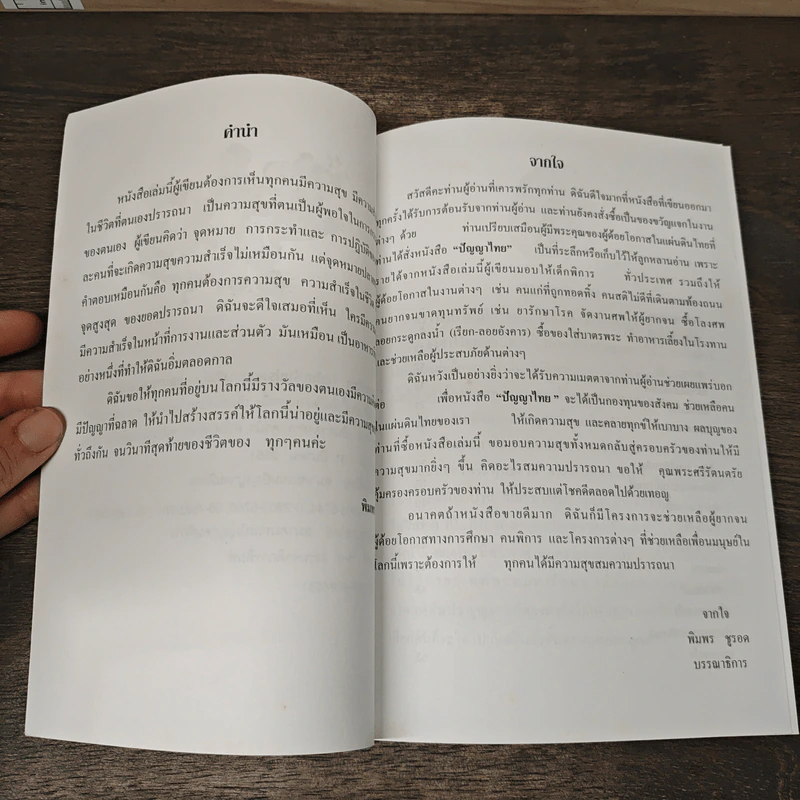 คำนำ
หนังสือเล่มนี้ผู้เขียนต้องการเห็นทุกคนมีความสุข
ในชีวิตที่ตนเองปรารถนา เป็นความสุขที่ตนเป็นผู้พอใจในการ
ของตนเอง ผู้เขียนคิดว่า จุดหมาย การกระทำและ การปฏิบัติ
ละคนที่จะเกิดความสุขความสำเร็จไม่เหมือนกัน แต่จุดหมายปลาย
คำตอบเหมือนกันคือ ทุกคนต้องการความสุข ความสำเร็จในชีวิต
จุดสูงสุด ของยอดปรารถนา ดิฉันจะดีใจเสมอที่เห็น ใครมีความ
มีความสำเร็จในหน้าที่การงานและส่วนตัว มันเหมือน เป็นอาหาร
อย่างหนึ่งที่ทำให้ดิฉันอิ่มตลอดกาล
ดิฉันขอให้ทุกคนที่อยู่บนโลกนี้มีรางวัลของตนเองมีความ
มีปัญญาที่ฉลาด ให้นำไปสร้างสรรค์ให้โลกนี้น่าอยู่และมีความสุข
ทั่วถึงกัน จนวินาทีสุดท้ายของชีวิตของ ทุกๆคนค่ะ
พิมพร
จากใจ
สวัสดีคะท่านผู้อ่านที่เคารพรักทุกท่าน ดิฉันดีใจมากที่หนังสือที่เขียนออกมา
ทุกครั้งได้รับการต้อนรับจากท่านผู้อ่าน และท่านยังคงสั่งซื้อเป็นของขวัญแจกในงาน
ต่างๆ ด้วย ท่านเปรียบเสมือนผู้มีพระคุณของผู้ด้อยโอกาสในแผ่นดินไทยที่
ท่านได้สั่งหนังสือ “ปัญญาไทย” เป็นที่ระลึกหรือเก็บไว้ให้ลูกหลานอ่าน เพราะ
รายได้จากหนังสือเล่มนี้ผู้เขียนมอบให้เด็กพิการ ทั่วประเทศ รวมถึงให้
ผู้ด้อยโอกาสในงานต่างๆ เช่น คนแก่ที่ถูกทอดทิ้ง คนสติไม่ดีที่เดินตามท้องถนน
คนยากจนขาดทุนทรัพย์ เช่น ยารักษาโรค จัดงานศพให้ผู้ยากจน ซื้อโลงศพ
ลอยกระดูกลงน้ำ (เรียก-ลอยอังคาร) ซื้อของใส่บาตรพระ ทำอาหารเลี้ยงในโรงทาน
และช่วยเหลือผู้ประสบภัยด้านต่างๆ
ดิฉันหวังเป็นอย่างยิ่งว่าจะได้รับความเมตตาจากท่านผู้อ่านช่วยเผยแพร่บอก
ต่อ เพื่อหนังสือ “ปัญญาไทย” จะได้เป็นกองทุนของสังคม ช่วยเหลือคน
ในแผ่นดินไทยของเรา ให้เกิดความสุข และคลายทุกข์ให้เบาบาง ผลบุญของ
ท่านที่ซื้อหนังสือเล่มนี้ ขอมอบความสุขทั้งหมดกลับสู่ครอบครัวของท่านให้มี
ความสุขมากยิ่งๆ ขึ้น คิดอะไรสมความปรารถนา ขอให้ คุณพระศรีรัตนตรัย
คุ้มครองครอบครัวของท่าน ให้ประสบแต่โชคดีตลอดไปด้วยเทอญ
อนาคตถ้าหนังสือขายดีมาก ดิฉันก็มีโครงการจะช่วยเหลือผู้ยากจน
ผู้ด้อยโอกาสทางการศึกษา คนพิการ และโครงการต่างๆ ที่ช่วยเหลือเพื่อนมนุษย์ใน
โลกนี้เพราะต้องการให้ ทุกคนได้มีความสุขสมความปรารถนา
จากใจ
พิมพร ชูรอด
บรรณาธิการ